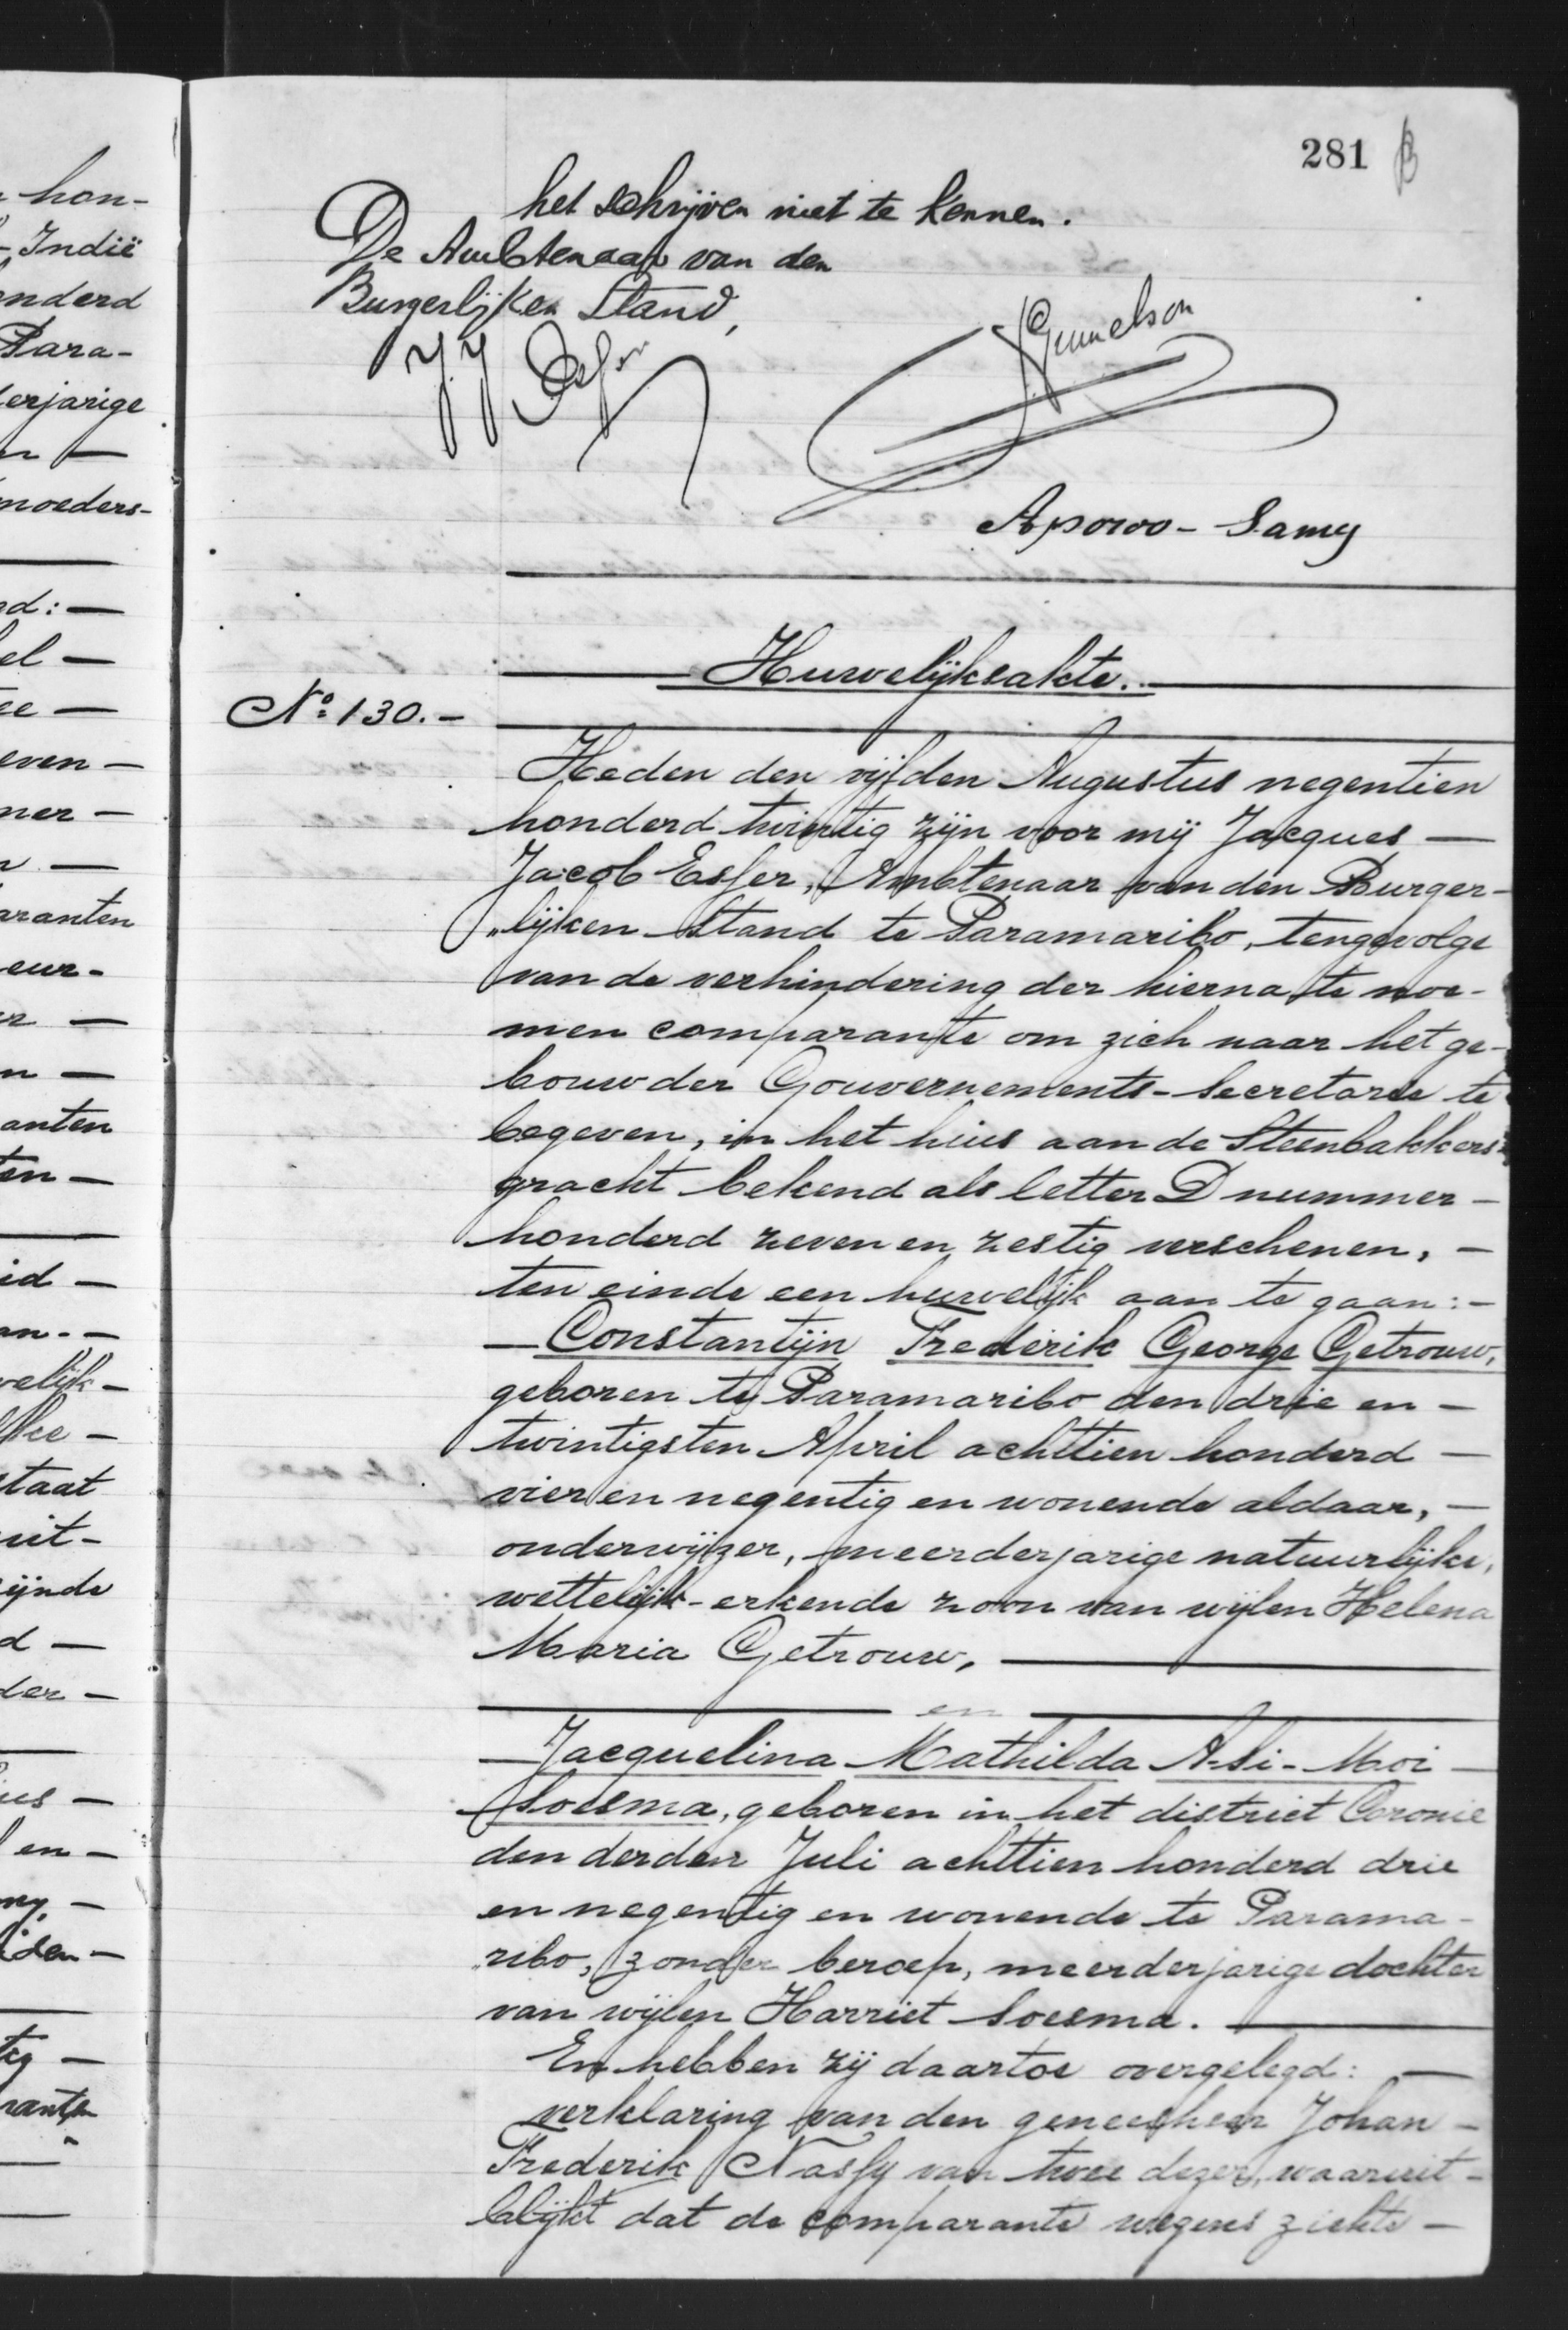 281
het schrijven niet te kennen.
De Ambtenaar van den
Burgerlijken Stand,
Apowo - Samy
Huwelijksakte.
No. 130.-
Heden den vijfden Augustus negentien
honderd twintig zijn voor mij Jacques —
Jacob Esser, Ambtenaar van den Burger-
„lijken Stand te Paramaribo, tengevolge
van de verhindering der hierna te noe-
men comparante om zich naar het ge-
bouw der Gouvernements-Secretarie te
begeven, in het huis aan de Steenbakkers-
gracht bekend als letter D nummer -
honderd zeven en zestig verschenen, -
ten einde een huwelijk aan te gaan: -
— Constantijn Frederik George Getrouw,
geboren te Paramaribo den drie en -
twintigsten April achttien honderd —
vier en negentig en wonende aldaar, —
onderwijzer, meerderjarige natuurlijke,
wettelijk-erkende zoon van wijlen Helena
Maria Getrouw, —
en
— Jacquelina Mathilda A-si-Moi —
Soesma, geboren in het district Coronie
den derden Juli achttien honderd drie
en negentig en wonende te Parama-
„ribo, zonder beroep, meerderjarige dochter
van wijlen Harriet Soesma. —
En hebben zij daartoe overgelegd: —
verklaring van den geneesheer Johan -
Frederik Nassy van twee dezer, waaruit -
blijkt dat de comparante wegens ziekte —
hon-
- Indië
onderd
Para-
derjarige
moeders-